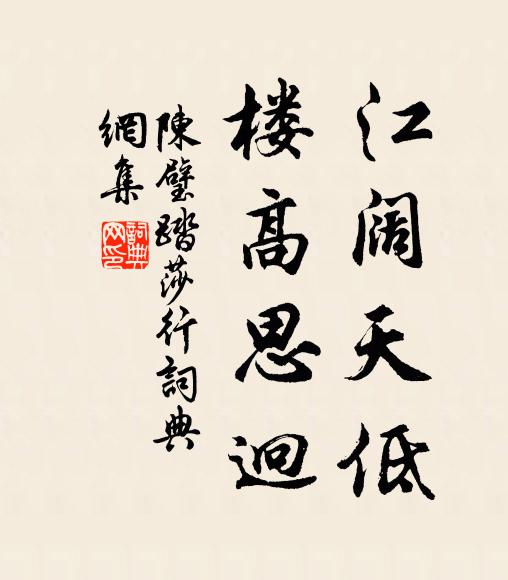 江阔天低
楼高思迥
陳璧踏莎行詞典
網集
詞典
网印